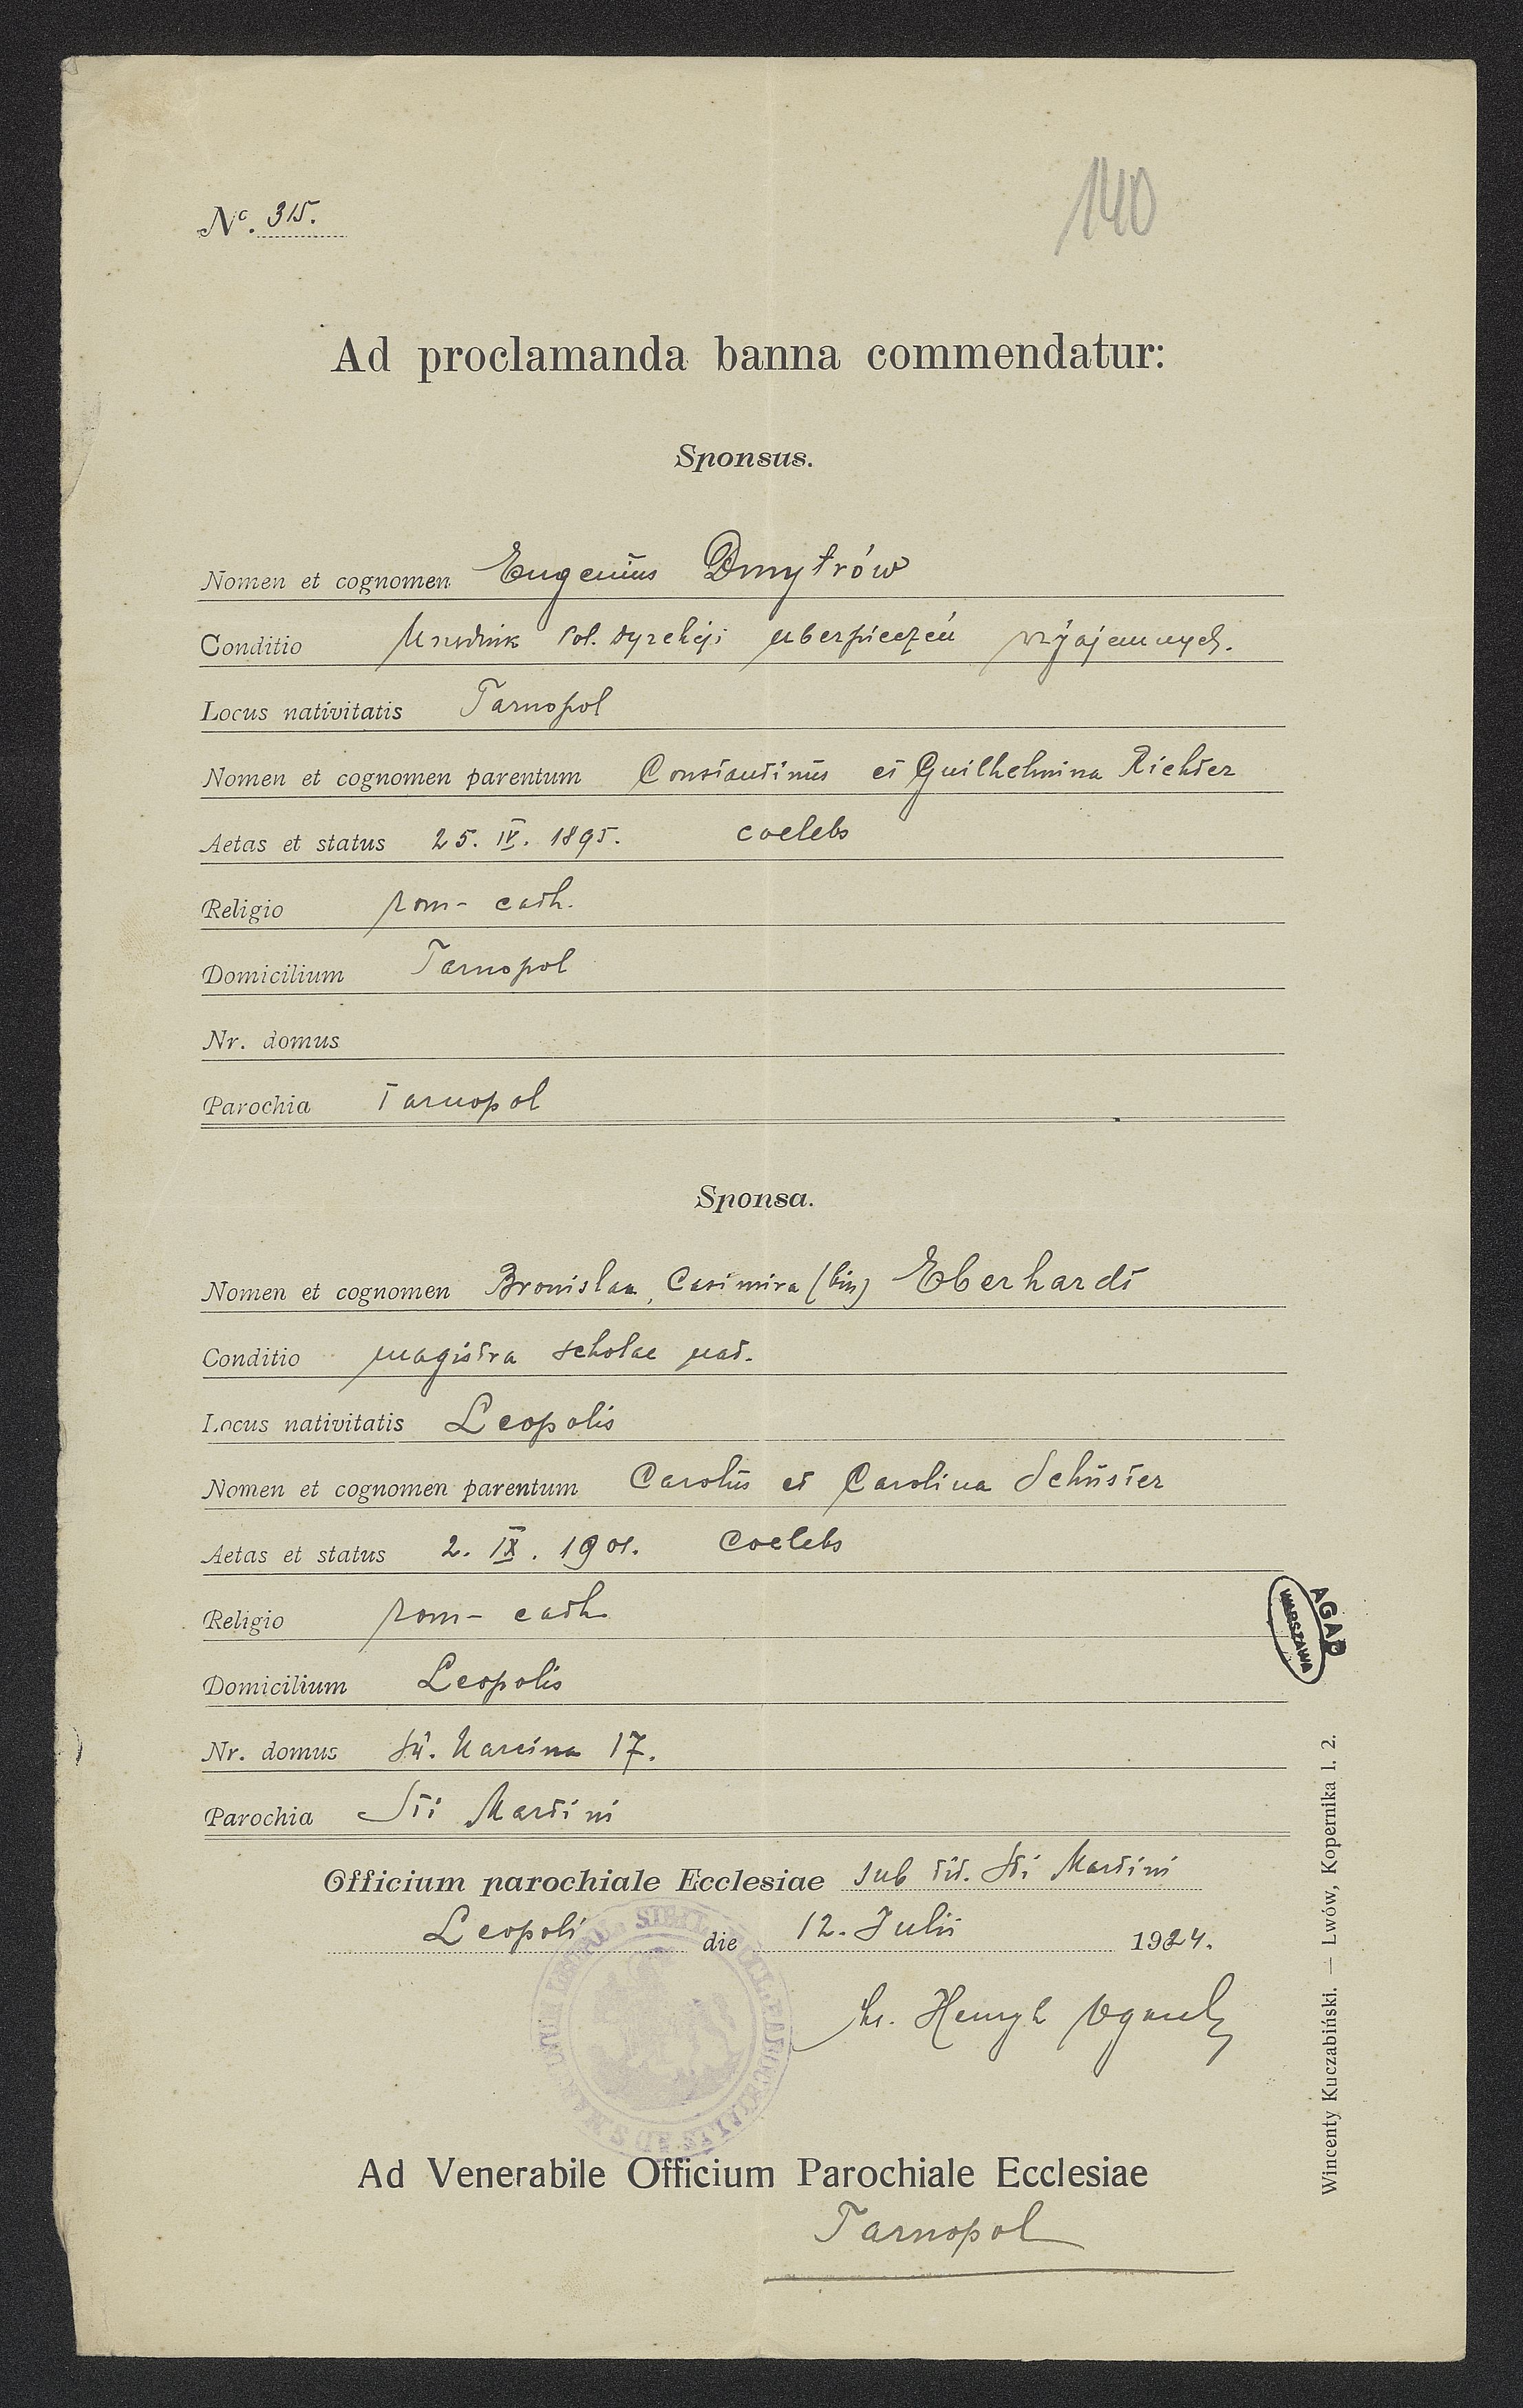 Nc. 315.
140
Ad proclamanda banna commendatur:
Sponsus.
Nomen et cognomen Eugenius Dmytrów
Conditio Urzędnik Pol. dyrekcji ubezpieczeń wzajemnych.
Locus nativitatis Tarnopol
Nomen et cognomen parentum Constantinus et Guilhelmina Richter
Aetas et status 25. IV. 1895. coelebs
Religio rom- cath.
Domicilium Tarnopol
Nr. domus
Parochia Tarnopol
Sponsa.
Nomen et cognomen Bronislaa, Casimira (bin) Eberhardt
Conditio magistra scholae
Locus nativitatis Leopolis
Nomen et cognomen parentum Carolus et Carolina Schuster
Aetas et status 2. IX. 1901. Coelebs
Religio rom- cath
Domicilium Leopolis
Nr. domus św. Marcina 17.
Parochia Sti Martini
Officium parochiale Ecclesiae sub tit. Sti Martini
Leopoli die 12. Julii 1924.
ks. Henryk
Ad Venerabile Officium Parochiale Ecclesiae
Tarnopol
AGAD
WARSZAWA
Wincenty Kuczabiński. — Lwów, Kopernika l. 2.